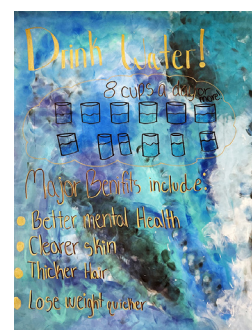 Drink Water!
8 cups a day or
more!
Major Benefits include:
Better mental Health
Clearer skin
Thicker Hair
Lose weight quicker